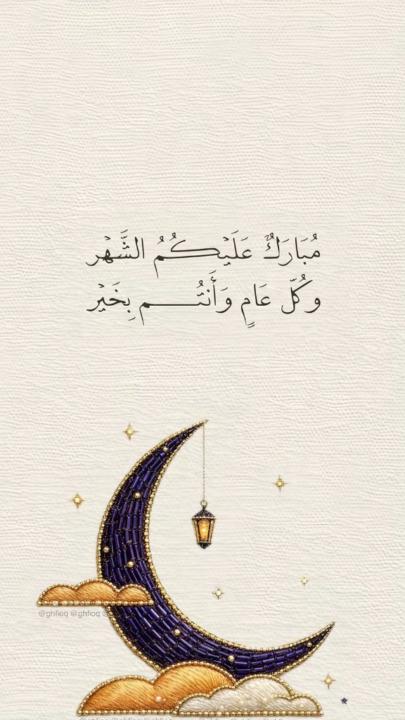 مُبَارَكٌ عَلَيْكُمُ الشَّهْر
وكُلّ عَامٍ وَأَنتُـــم بِخَيْر
@ghfioq @ghfioq